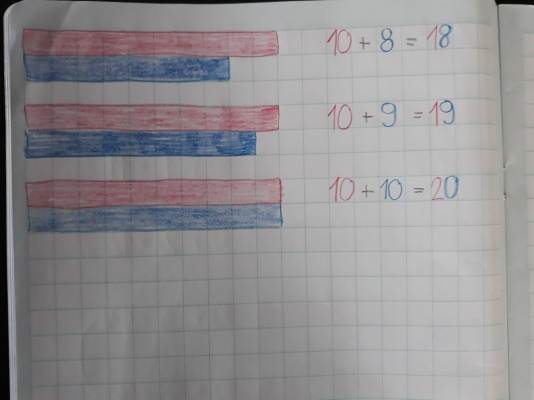 10 + 8 = 18
10 + 9 = 19
10 + 10 = 20